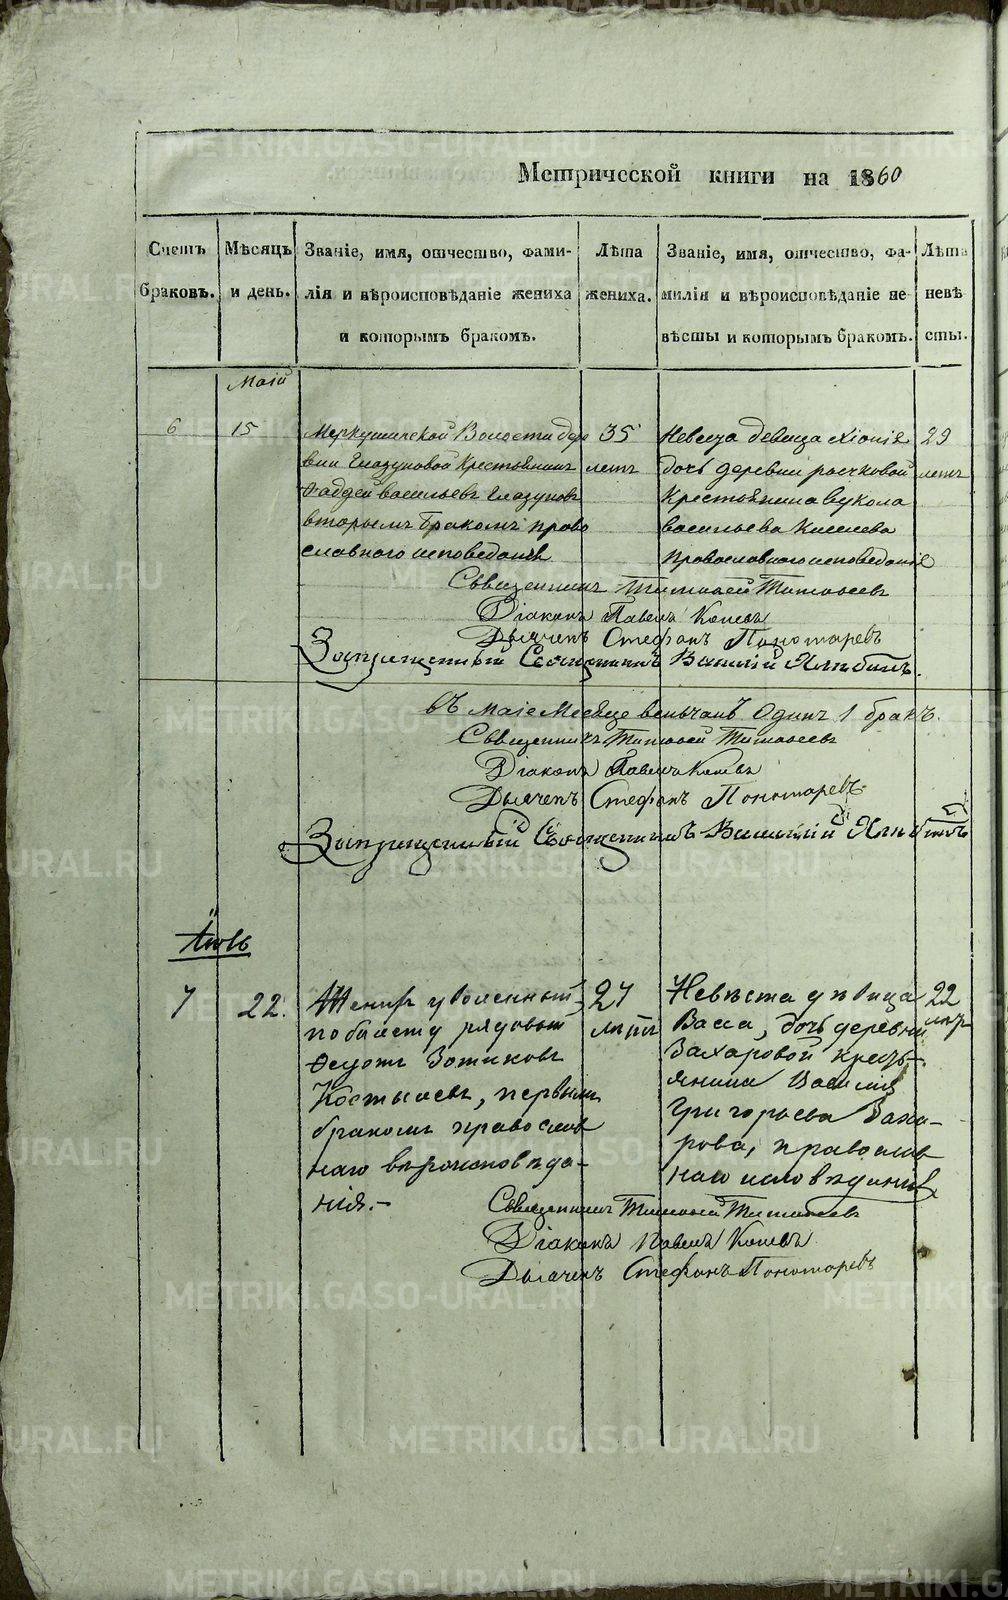 Метрической книги на 1860
Счетъ браковъ.
Мѣсяцъ и день.
Званіе, имя, отчество, фами-
лія и вѣроисповѣданіе жениха
и которымъ бракомъ.
Лѣта
жениха.
Званіе, имя, отчество, фа-
милія и вѣроисповѣданіе не-
вѣсты и которымъ бракомъ.
Лѣта
невѣ
сты.
Маій
6
15
Меркушинской Волости дере
вни Глазуновой Крестьянинъ
Фаддей васильевъ Глазуновъ
вторымъ бракомъ право
славного исповеданія
35
летъ
Невеста девица Хіонія
дочь деревни
Крестьянина вукола
васильева Киселева
православного исповеданія
29
летъ
Священникъ Тимофей Тимофеевъ
Діаконъ Павелъ Копевъ
Дьячекъ Стефанъ Пономаревъ
Запрещенный Священникъ Василій
въ Маіе Месяце веньчанъ Одинъ 1 бракъ.
Священникъ Тимофей Тимофеевъ
Діаконъ Павелъ Копевъ
Дьячекъ Стефанъ Пономаревъ
Запрещенный Священникъ Василій
7
22.
Женихъ уволенный
по билету рядовый
Федотъ Зотиковъ
Костылевъ, первымъ
бракомъ православ
наго вѣроисповѣда-
нія.-
27
лѣтъ
Невѣста дѣвица
Васса, дочь деревни
Захаровой кресть-
янина Василія
Григорьева Заха-
рова, православ
наго исповѣданія
22
лѣтъ
Священникъ Тимофей Тимофеевъ
Діаконъ Павелъ Копевъ
Дьячекъ Стефанъ Пономаревъ
METRIKI.GASO-URAL.RU